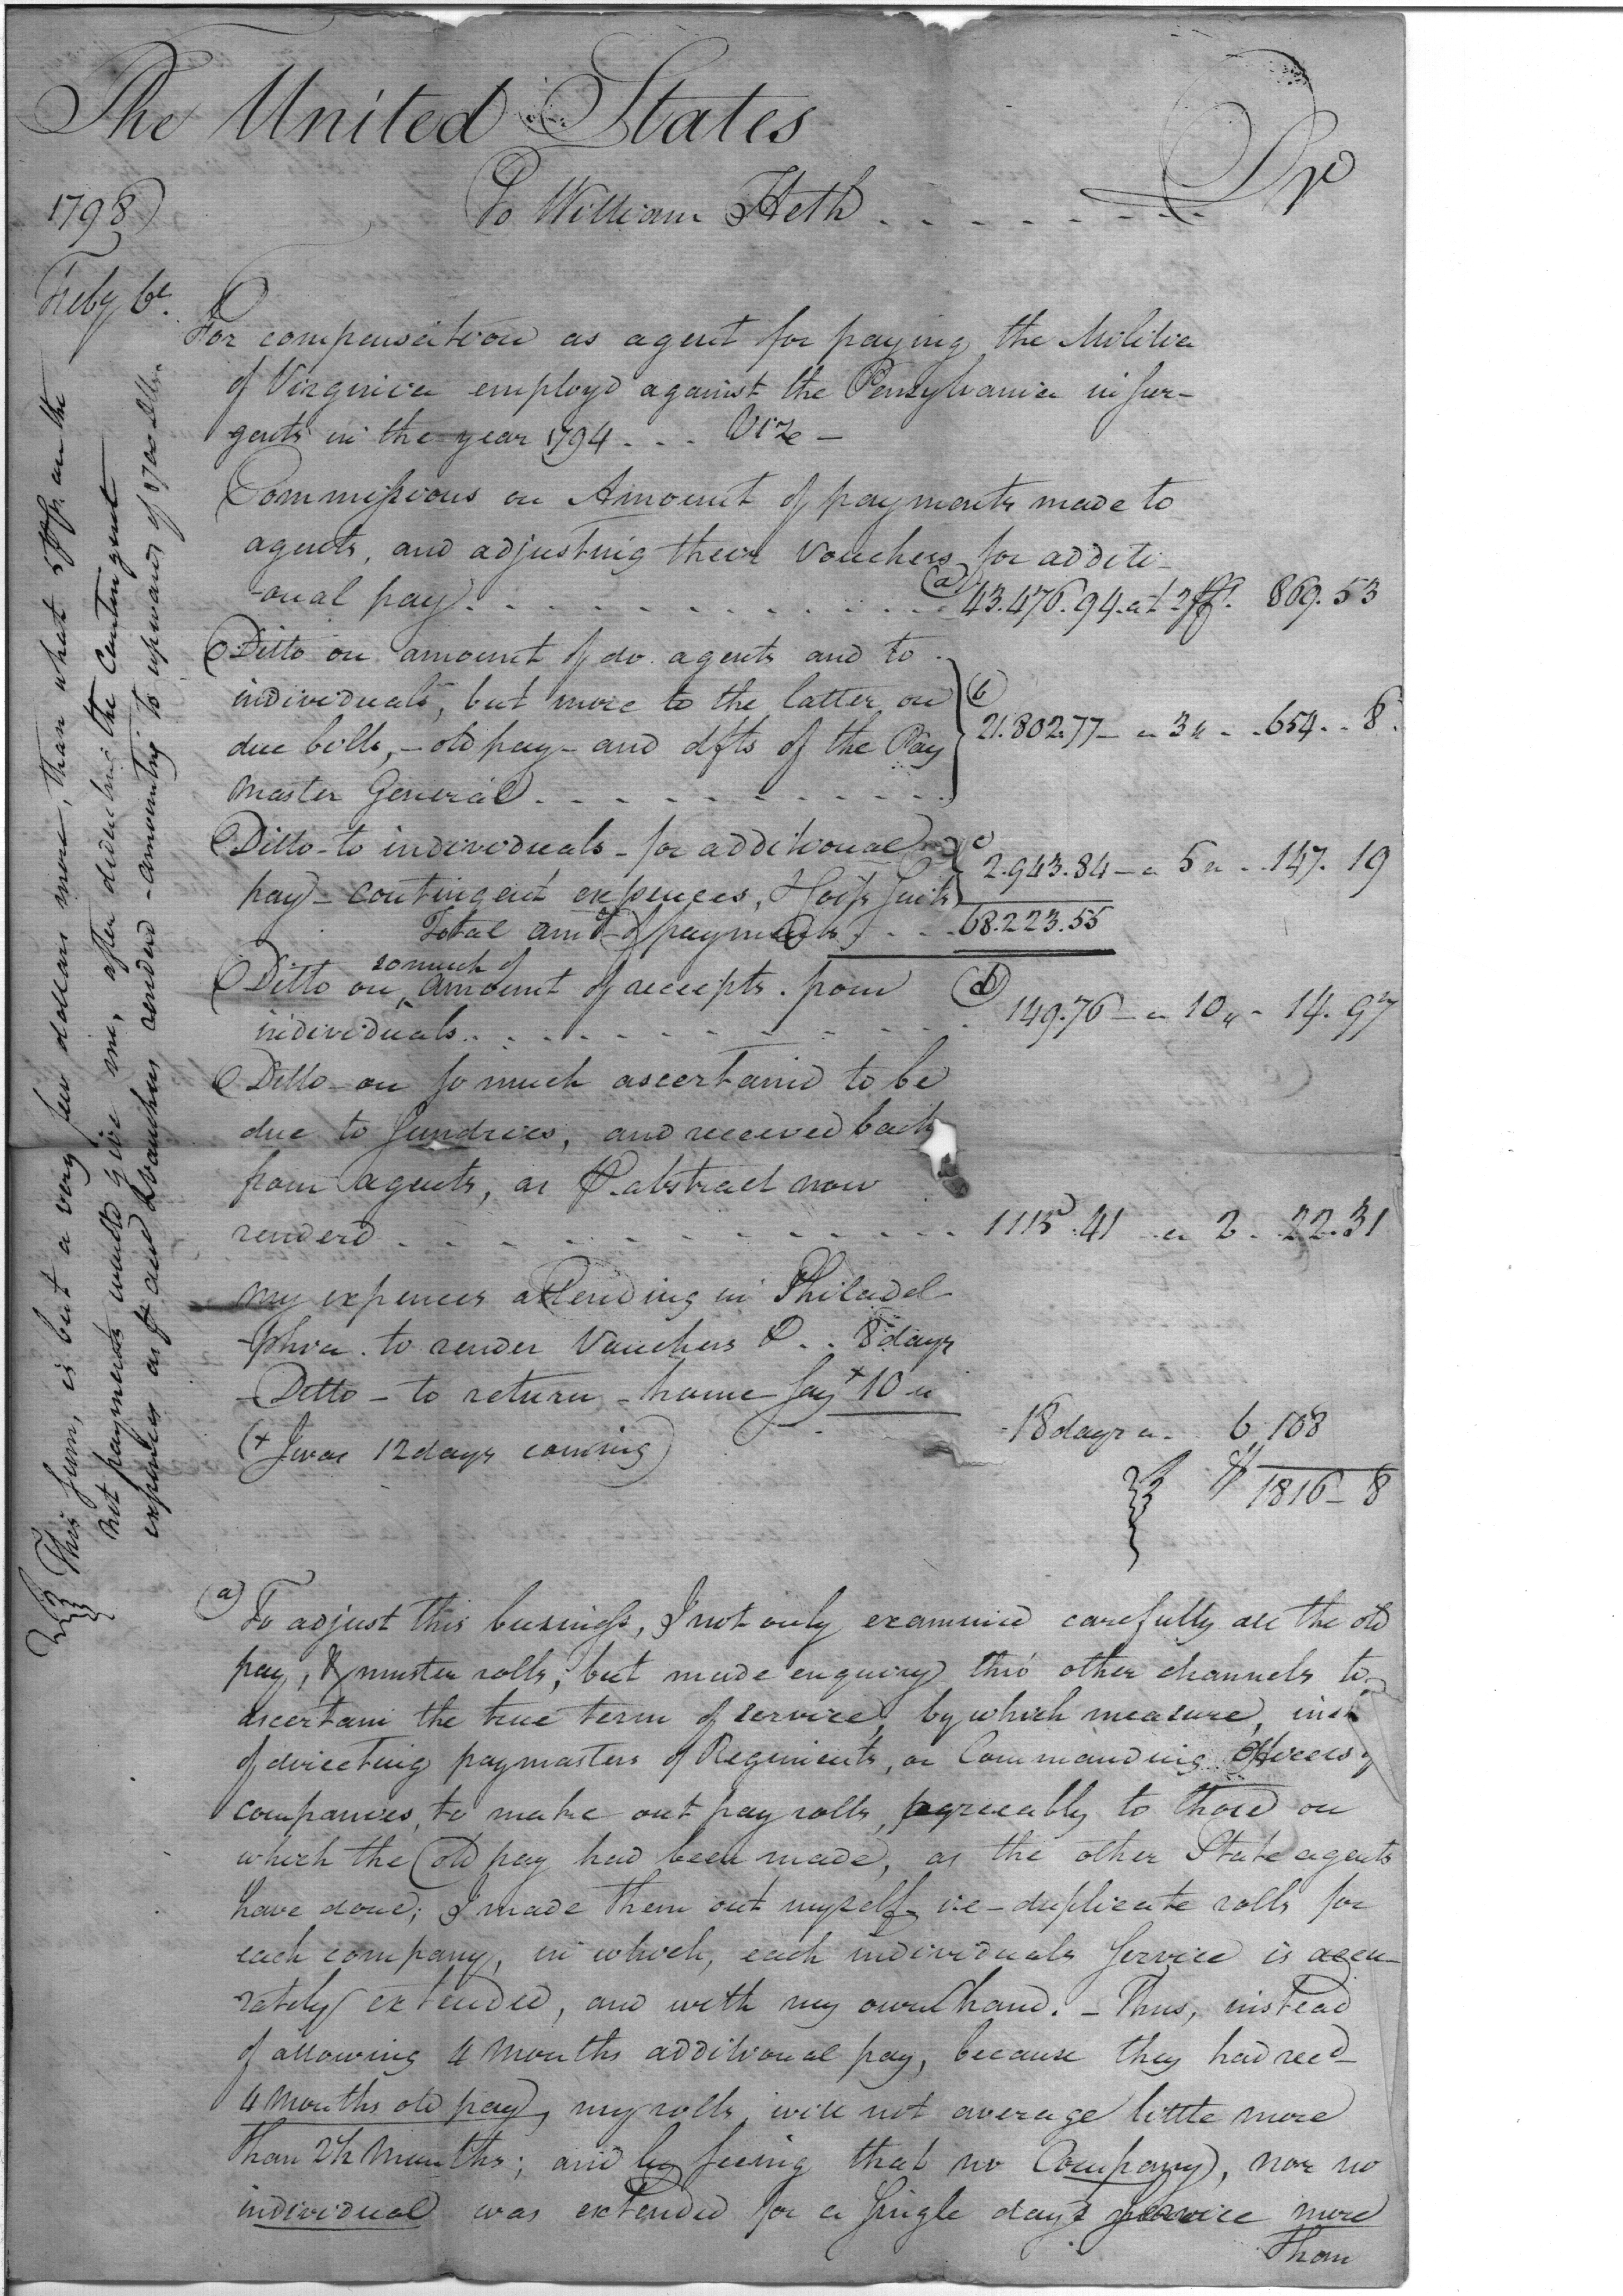 The United States Dr
1798 To William Heth
Feby 6th.
For compensation as agent for paying the Militia
of Virginia employd against the Pensylvania insur-
gents in the year 1794 - - - Vize -
Commissions on Amount of payments made to
agents, and adjusting their Vouchers for additi-
onal pay (a) 43.476.94. at 2 pCt. 869.53
Ditto on amount of do. agents and to
individuals, but more to the latter, on (b)
due bills, - old pay - and dfts of the Pay 21.802.77 - a 3 " - 654 - 8.
Master General
Ditto - to individuals - for additional (c)
pay - contingent expences, Hospl Suits 2.943.84 - a 5 " - 147. 19
Total amt of payments 68.223.55
so much of
Ditto on ^ amount of receipts from (d)
individuals 149.76 - a 10 " - 14. 97
Ditto - on so much ascertaind to be
due to Sundries, and received back
from agents, as P. abstract now
renderd 1115.41 - a 2 - 22.31
My expences attending in Philadel-
phia. to render Vouchers & - - 8 days
Ditto - to return - home say + 10 "
(+ I was 12 days coming) 18 days a - 6 108
$ 1816 - 8
This sum, is but a very few dollars more, than what 5 pCt. on the
net payments would give me, after deducting the Contingent
expences as P acct & vouchers renderd - amounting to upward of 2700 Dlls.
(a) To adjust this business, I not only examined carefully all the old
pay, & muster rolls, but made enquiry thro' other channels to
ascertain the true term of service, by which measure, inst
of directing paymasters of Regiments, or Commanding Officers of
companies, to make out pay rolls, agreeably to those on
which the old pay had been made, as the other State agents
have done; I made them out myself ie - duplicate rolls for
each company, in which, each individuals Service is accu-
rately extended, and with my own hand. - Thus, instead
of allowing 4 Months additional pay, because they had recd
4 Months old pay, my rolls, will not average little more
than 2½ Months; and by seeing that no Company, nor no
individual was extended for a single days service more
than